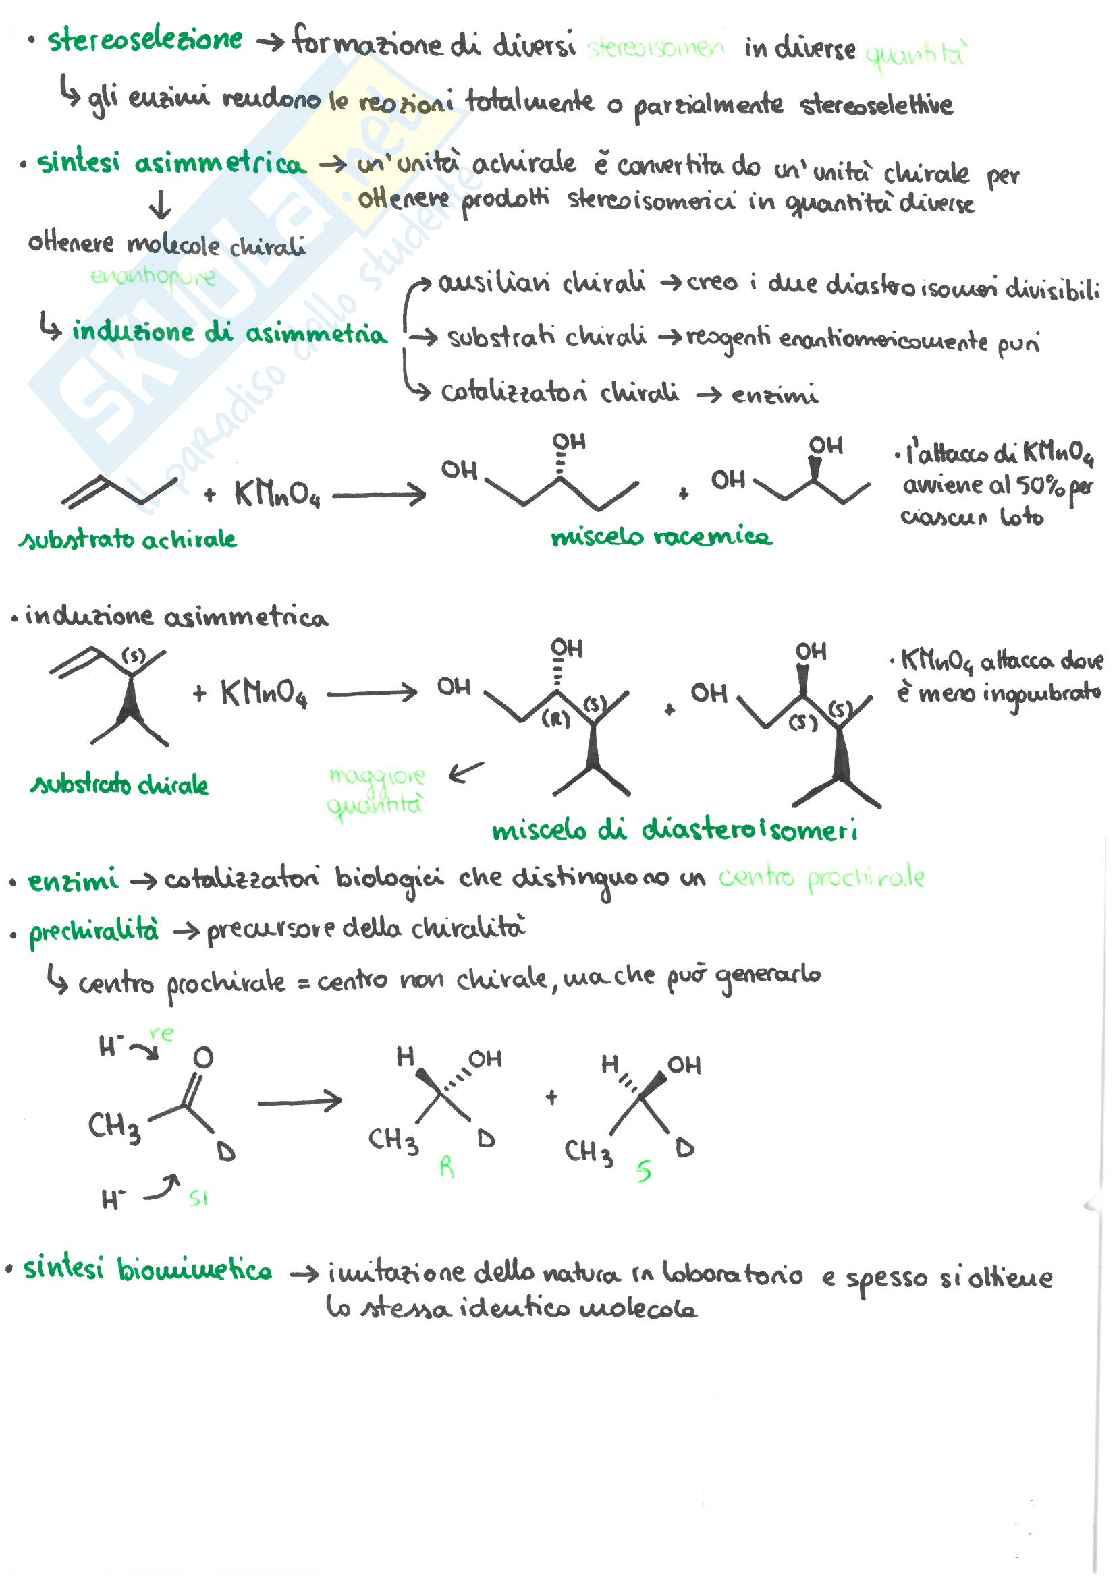 • stereoselezione → formazione di diversi stereoisomeri in diverse quantità
↳ gli enzimi rendono le reazioni totalmente o parzialmente stereoselettive
• sintesi asimmetrica → un'unità achirale è convertita da un'unità chirale per
ottenere prodotti stereoisomerici in quantità diverse
↓
ottenere molecole chirali
enantiopure
→ ausiliari chirali → creo i due diastroisomeri divisibili
↳ induzione di asimmetria → substrati chirali → reagenti enantiomericamente puri
→ catalizzatori chirali → enzimi
SKUOLA.net
il paradiso dello studente
+ KMnO4 → OH OH + OH OH
• l'attacco di KMnO4
avviene al 50% per
ciascun lato
substrato achirale
miscela racemica
• induzione asimmetrica
(S) + KMnO4 → OH OH (R) (S) + OH OH (S) (S)
• KMnO4 attacca dove
è meno ingombrato
substrato chirale
maggiore
quantità
miscela di diasteroisomeri
• enzimi → catalizzatori biologici che distinguono un centro prochirale
• prechiralità → precursore della chiralità
↳ centro prochirale = centro non chirale, ma che può generarlo
H⁻ re
O → H OH + H OH
CH3 D CH3 D CH3 D
R S
H⁻ si
• sintesi biomimetica → imitazione della natura in laboratorio e spesso si ottiene
la stessa identica molecola